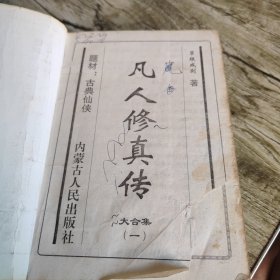 草根成剑 著
凡人修真传
大合集
(一)
题材：古典仙侠
内蒙古人民出版社